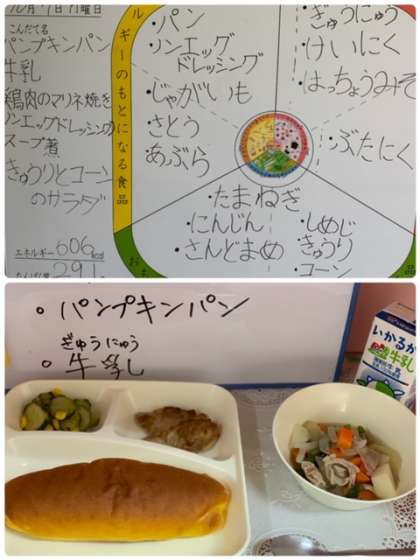 こんだて名
パンプキンパン
牛乳
鶏肉のマリネ焼き
ノンエッグドレッシング
スープ煮
きゅうりとコーン
のサラダ
エネルギー606
ギーのもとになる食品
・パン
・ノンエッグ
ドレッシング
・じゃがいも
・さとう
・あぶら
・ぎゅうにゅう
・けいにく
・はっちょうみそ
・ぶたにく
・たまねぎ
・にんじん
・さんどまめ
・しめじ
・きゅうり
・コーン
品
・パンプキンパン
ぎゅうにゅう
・牛乳
いかるが
牛乳